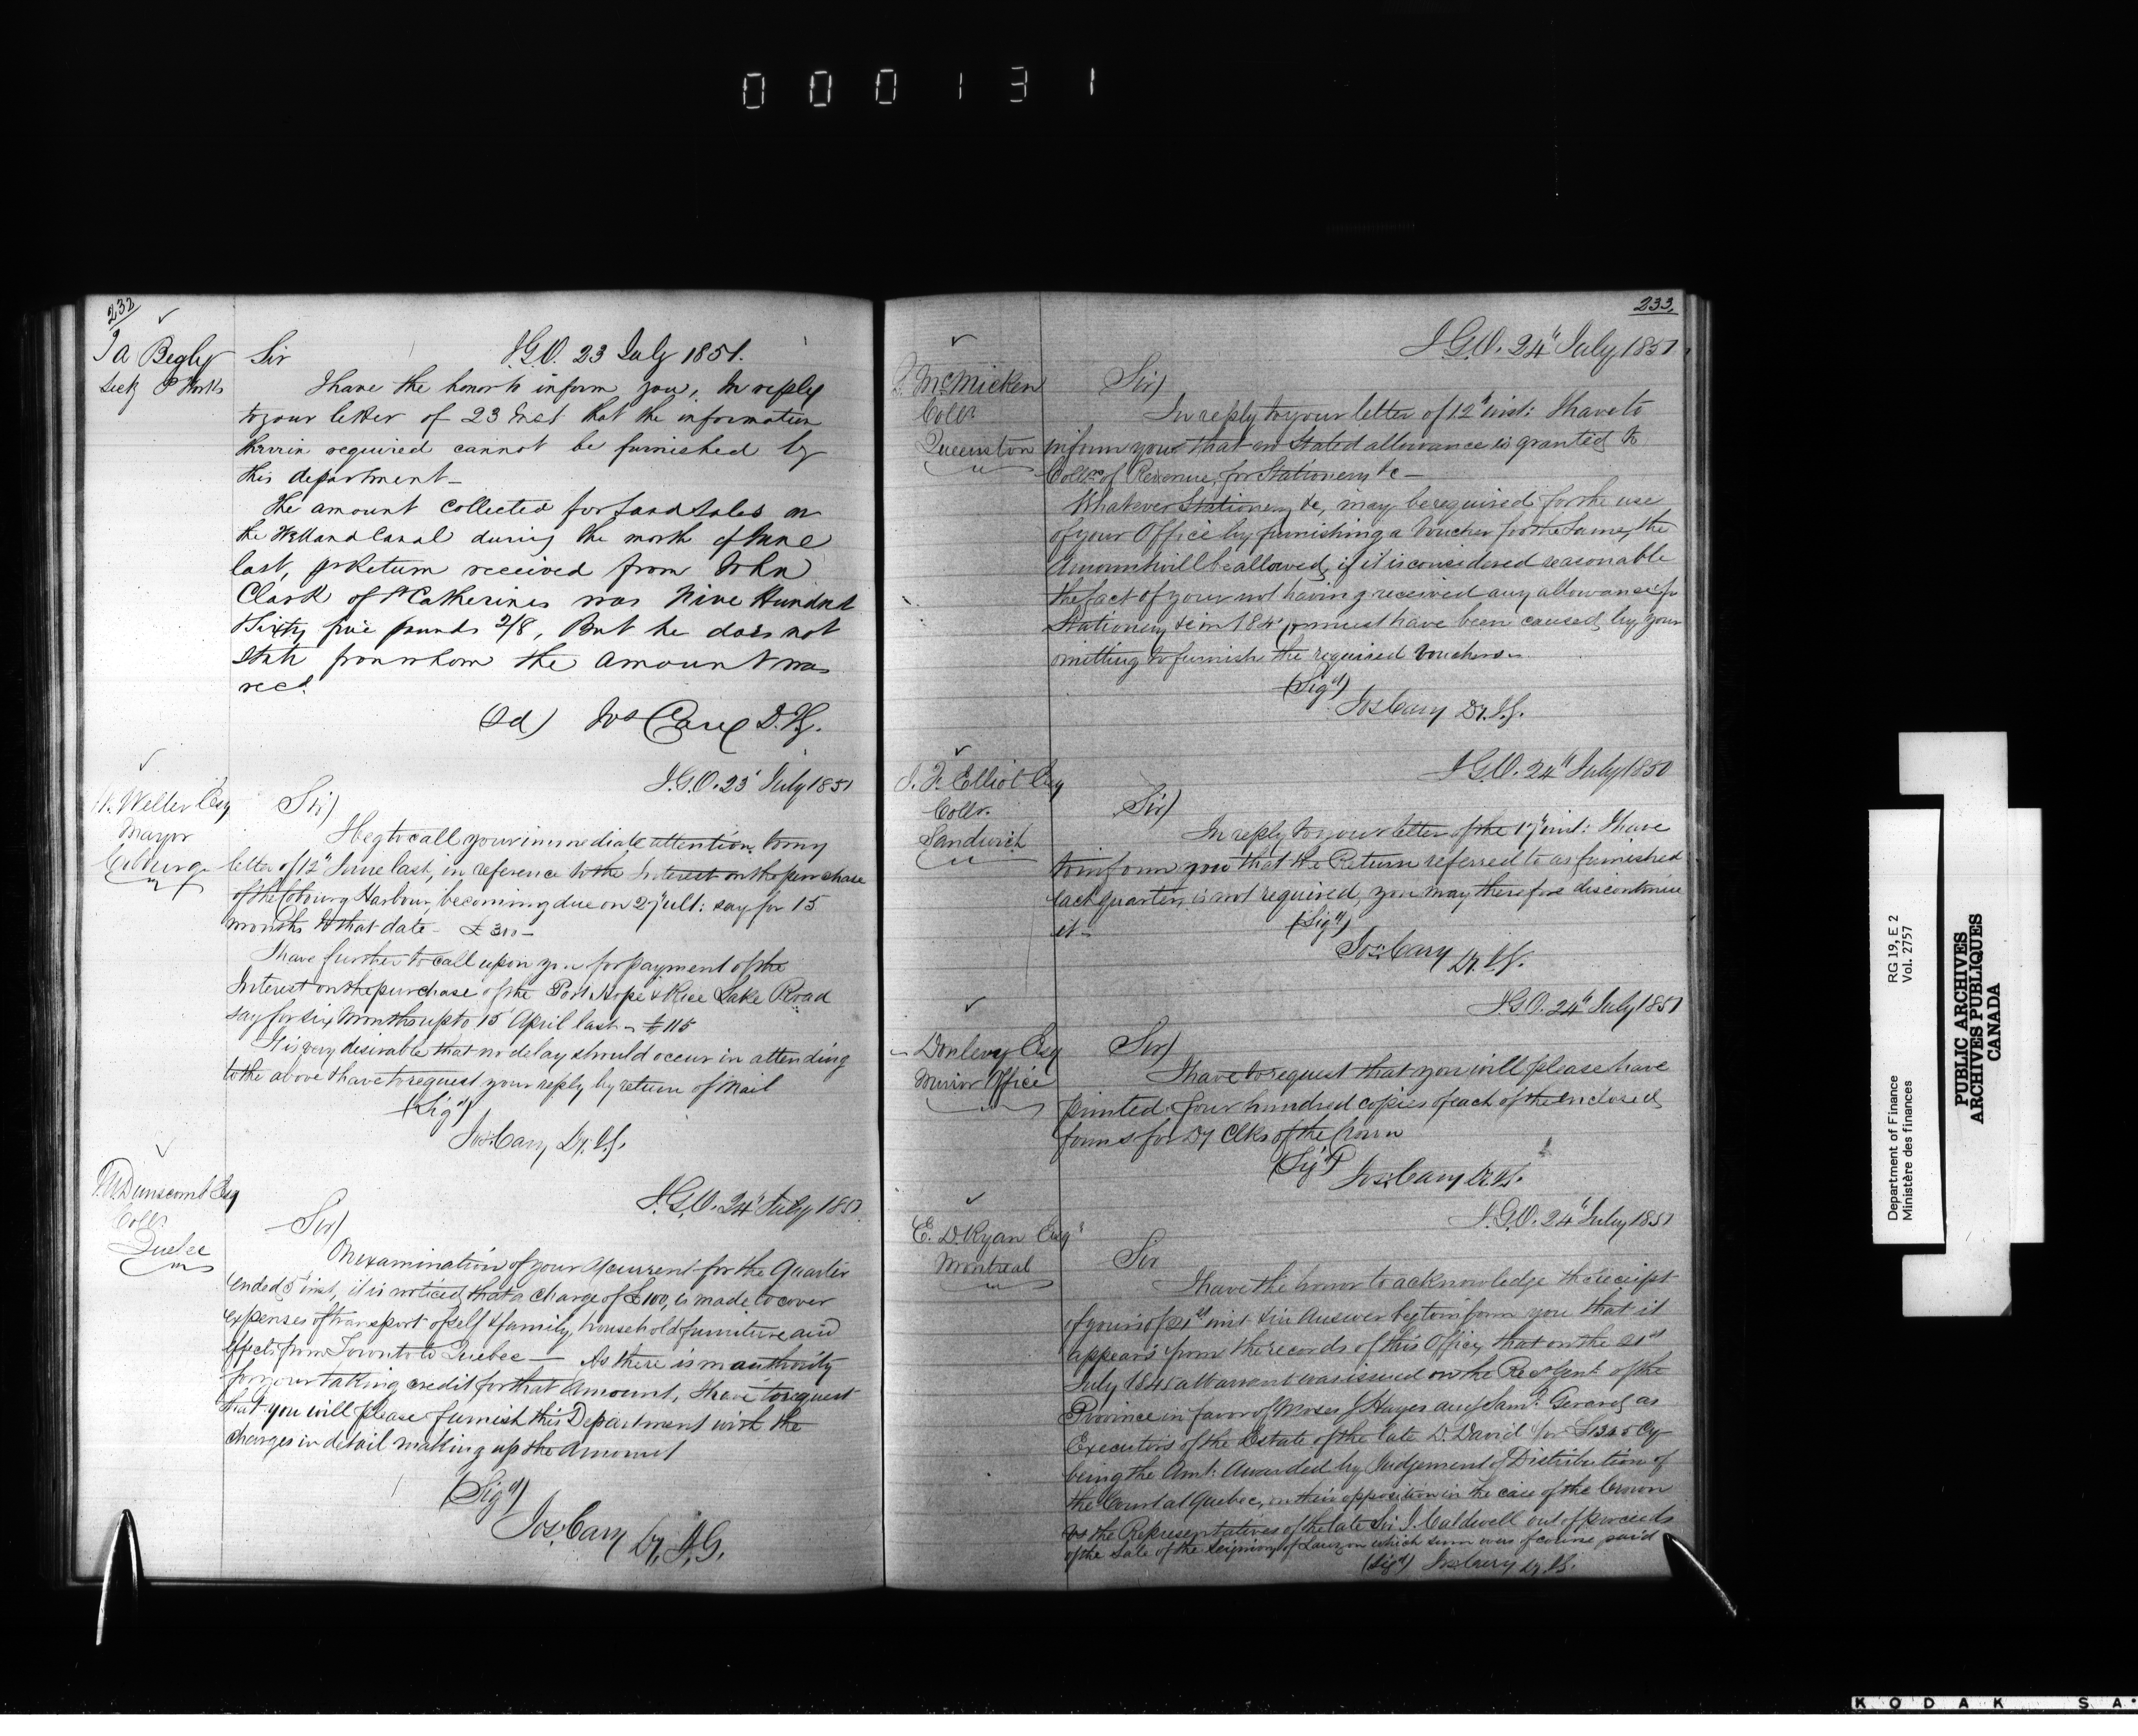 000131
232
Ja Begly
Secty P Works
Sir
I.G.O. 23 July 1851.
I have the honor to inform you, in reply
to your letter of 23 Inst that the information
therein required cannot be furnished by
this department_
The amount collected for Land Sales on
the Welland Canal during the month of June
last, pr Return received from John
Clark of St Catherines was Nine Hundred
& Sixty five pounds 2/8, But he does not
state from whom the amount was
recd.
(sd) Jos Cary D.I.G.
I.G.O. 23 July 1851
W. Weller Esq
Mayor
Cobourg
Sir)
I beg to call your immediate attention to my
letter of 12th June last, in reference to the Interest on the purchase
of the Cobourg Harbour, becoming due on 27 ult: say for 15
months to that date - £ 300 -
I have further to call upon you for payment of the
Interest on the purchase of the Port Hope & Rice Lake Road
say for six Months up to 15 April last - £115
It is very desirable that no delay should occur in attending
to the above I have to request your reply by return of Mail
(Sigd)
Jos: Cary Dy. I.G.
I.G.O. 24th July 1851
Dunscomb Esq
Collr.
Quebec
Sir)
On examination of your A/current for the Quarter
ended 5 inst, it is noticed that a charge of £100, is made to cover
expenses of transport of self & family, household furniture and
effects from Toronto to Quebec — As there is no authority
for your taking credit for that Amount, I have to request
that you will please furnish this Department with the
charges in detail making up the Amount
(Sigd)
Jos: Cary Dy. I.G.
233.
I.G.O. 24th July 1851
McMicken
Collr
Queenston
Sir)
In reply to your letter of 12th inst: I have to
inform you that no Stated allowance is granted to
Collrs of Revenue, for Stationery &c -
Whatever Stationery &c, may be required for the use
of your Office by furnishing a Voucher for the Same, the
Amount will be allowed, if it is considered reasonable
the fact of your not having received any allowance for
Stationery &c in 184 must have been caused, by your
omitting to furnish the required Vouchers -
(Sigd)
Jos: Cary Dy. I.G.
I.G.O. 24th July 1851
J. F. Elliot Esq
Collr.
Sandwich
Sir)
In reply to your letter of the 17 inst: I have
to inform you that the Return referred to as furnished
each quarter, is not required, you may therefore discontinue
it -
(Sigd)
Jos: Cary Dy. I.G.
I.G.O. 24th July 1851
- Donlevy Esq
Mirror Office
Sir)
I have to request that you will please have
printed four hundred copies of each of the enclosed
forms for Dy Clks of the Crown
(Sigd)
Jos: Cary D. I.G.
I.G.O. 24th July 1851
E. D. Ryan Esqr
Montreal
Sir
I have the honor to acknowledge the receipt
of yours of 21st inst & in Answer beg to inform you that it
appears from the records of this Office, that on the 21st
July 1845 a Warrant was issued on the Rec Genl of the
Province in favor of Moses J Hayes and Saml. Gerard, as
Executors of the Estate of the late D. David for Cy
being the Amt: Awarded by Judgement of Distribution of
the Court at Quebec, on their opposition in the case of the Crown
vs the Representatives of the late Sir J. Caldwell out of proceeds
of the Sale of the Seigniory of Lauzon which sum was of course paid
(Sigd) Jos: Cary Dy. I.G.
Department of Finance
Ministère des finances
RG 19, E 2
Vol. 2757
PUBLIC ARCHIVES
ARCHIVES PUBLIQUES
CANADA
KODAK SA